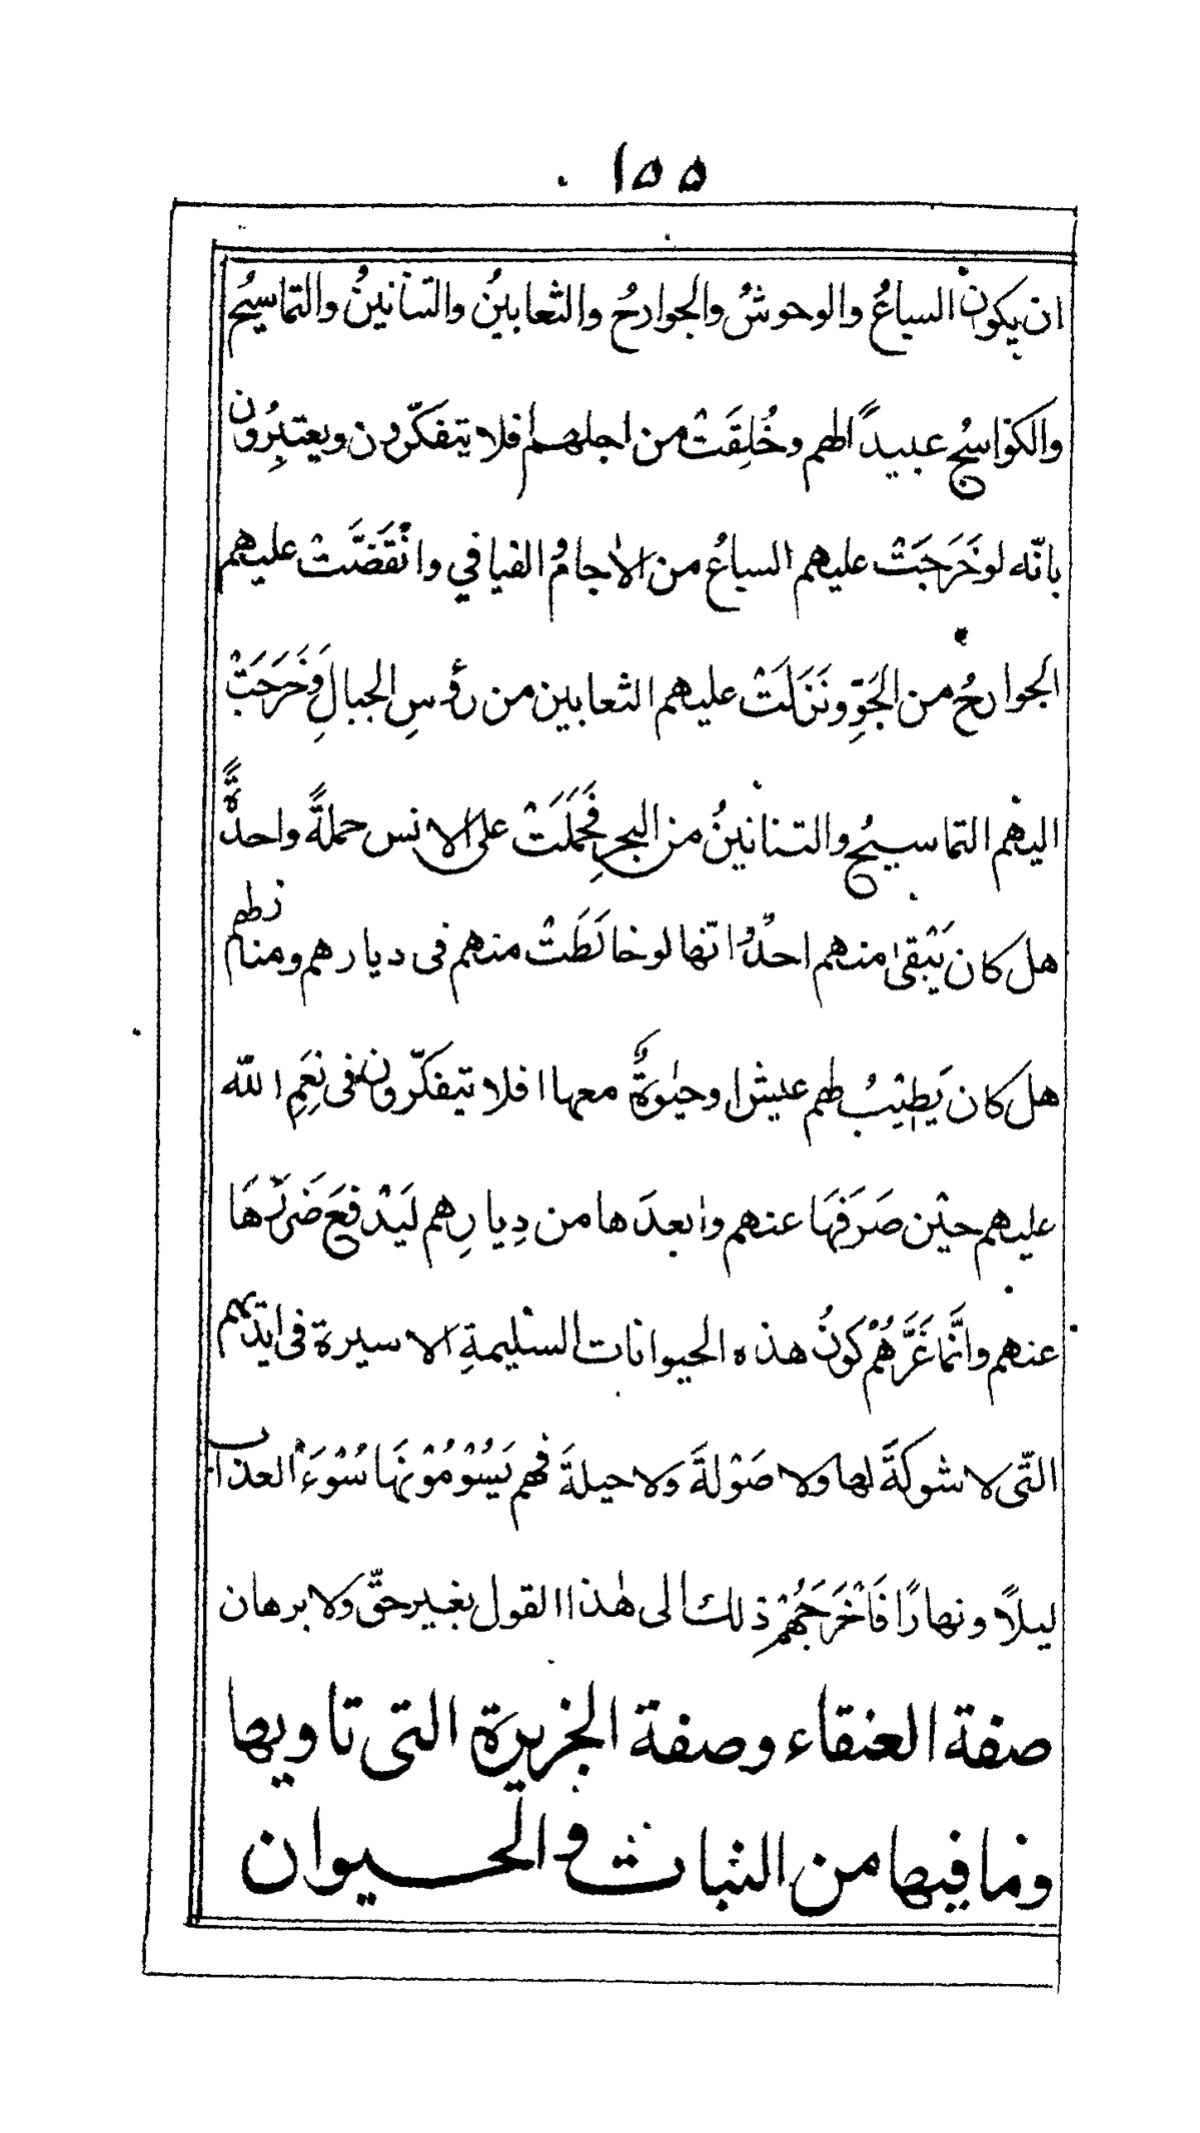 ١٥٥
ان يكون السباعُ والوحوشُ والجوارحُ والثعابينُ والتنانينُ والتماسيحُ
والكوَاسجُ عبيداً لهم وخُلِقَتْ من اجلهم افلا يتفكّرون ويعتبِرُون
بانّه لو خَرَجَتْ عليهم السباعُ من الاٰجامُ الفيافي وانْقَضَّتْ عليهم
الجوارحُ من الجَوِّ ونَزَلَتْ عليهم الثعابين من رؤسِ الجبالِ وَخَرَجَتْ
اليهم التماسيحُ والتنانينُ من البحرِ فَحَمَلَتْ على الانس حملةً واحدةً
هل كان يَبْقىٰ منهم احدٌ وانّها لو خالَطَتْ منهم فى ديارهم ومنازلهم
هل كان يَطِيْبُ لهم عيش او حيٰوةٌ معها افلا يتفكّرون فى نِعَمِ اللّه
عليهم حيْن صَرَفَهَا عنهم وابعدَها من دِيارِهم لَيَدْفعَ ضَرَرَهَا
عنهم وانَّما غَرَّهُمْ كَونُ هذه الحيوانات السَليمةِ الاسيرة فى ايديهم
التّى لا شوكةَ لها ولا صَوْلةَ ولا حيلةَ فهم يَسُوْمُوْنَهَا سُوْءَ العذاب
ليلاً ونهارًا فَاَخْرَجَهُمْ ذلك الى هٰذا القول بغير حقّ ولا برهان
صفة العنقاء وصفة الجزيرة التى تاويها
وما فيها من النبات والحيوان